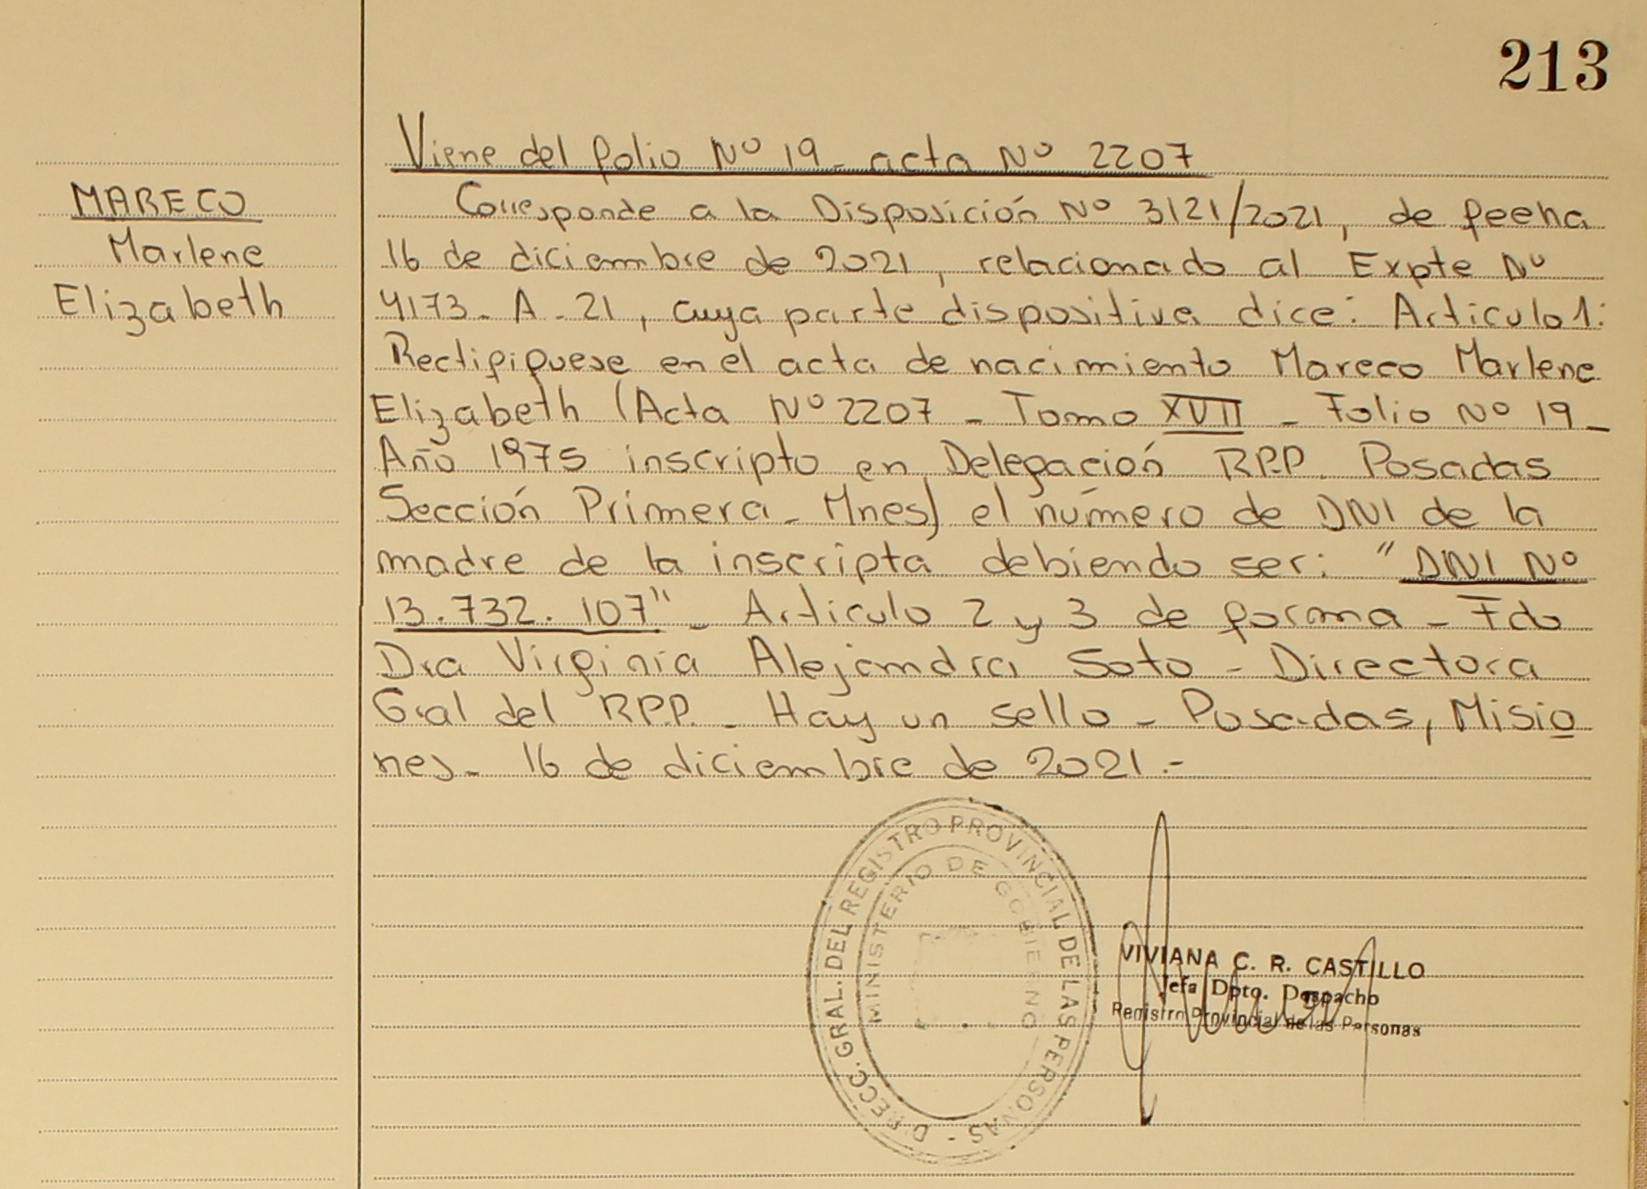 213
Viene del folio Nº 19 - acta Nº 2207
MARECO
Marlene
Elizabeth
Corresponde a la Disposición Nº 3121/2021, de fecha
16 de diciembre de 2021, relacionado al Expte Nº
4173 - A - 21, cuya parte dispositiva dice: Articulo 1:
Rectifiquese en el acta de nacimiento Mareco Marlene
Elizabeth (Acta Nº 2207 - Tomo XVII - Folio Nº 19 -
Año 1975 inscripto en Delegación R.P.P. Posadas
Sección Primera - Mnes) el número de DNI de la
madre de la inscripta debiendo ser: "DNI Nº
13.732.107" - Articulo 2 y 3 de forma - Fdo
Dra Virginia Alejandra Soto - Directora
Gral del R.P.P. - Hay un sello - Posadas, Misio
nes - 16 de diciembre de 2021.-
DIRECC. GRAL. DEL REGISTRO PROVINCIAL DE LAS PERSONAS -
MINISTERIO DE GOBIERNO
VIVIANA C. R. CASTILLO
Jefa Dpto. Despacho
Registro Provincial de las Personas